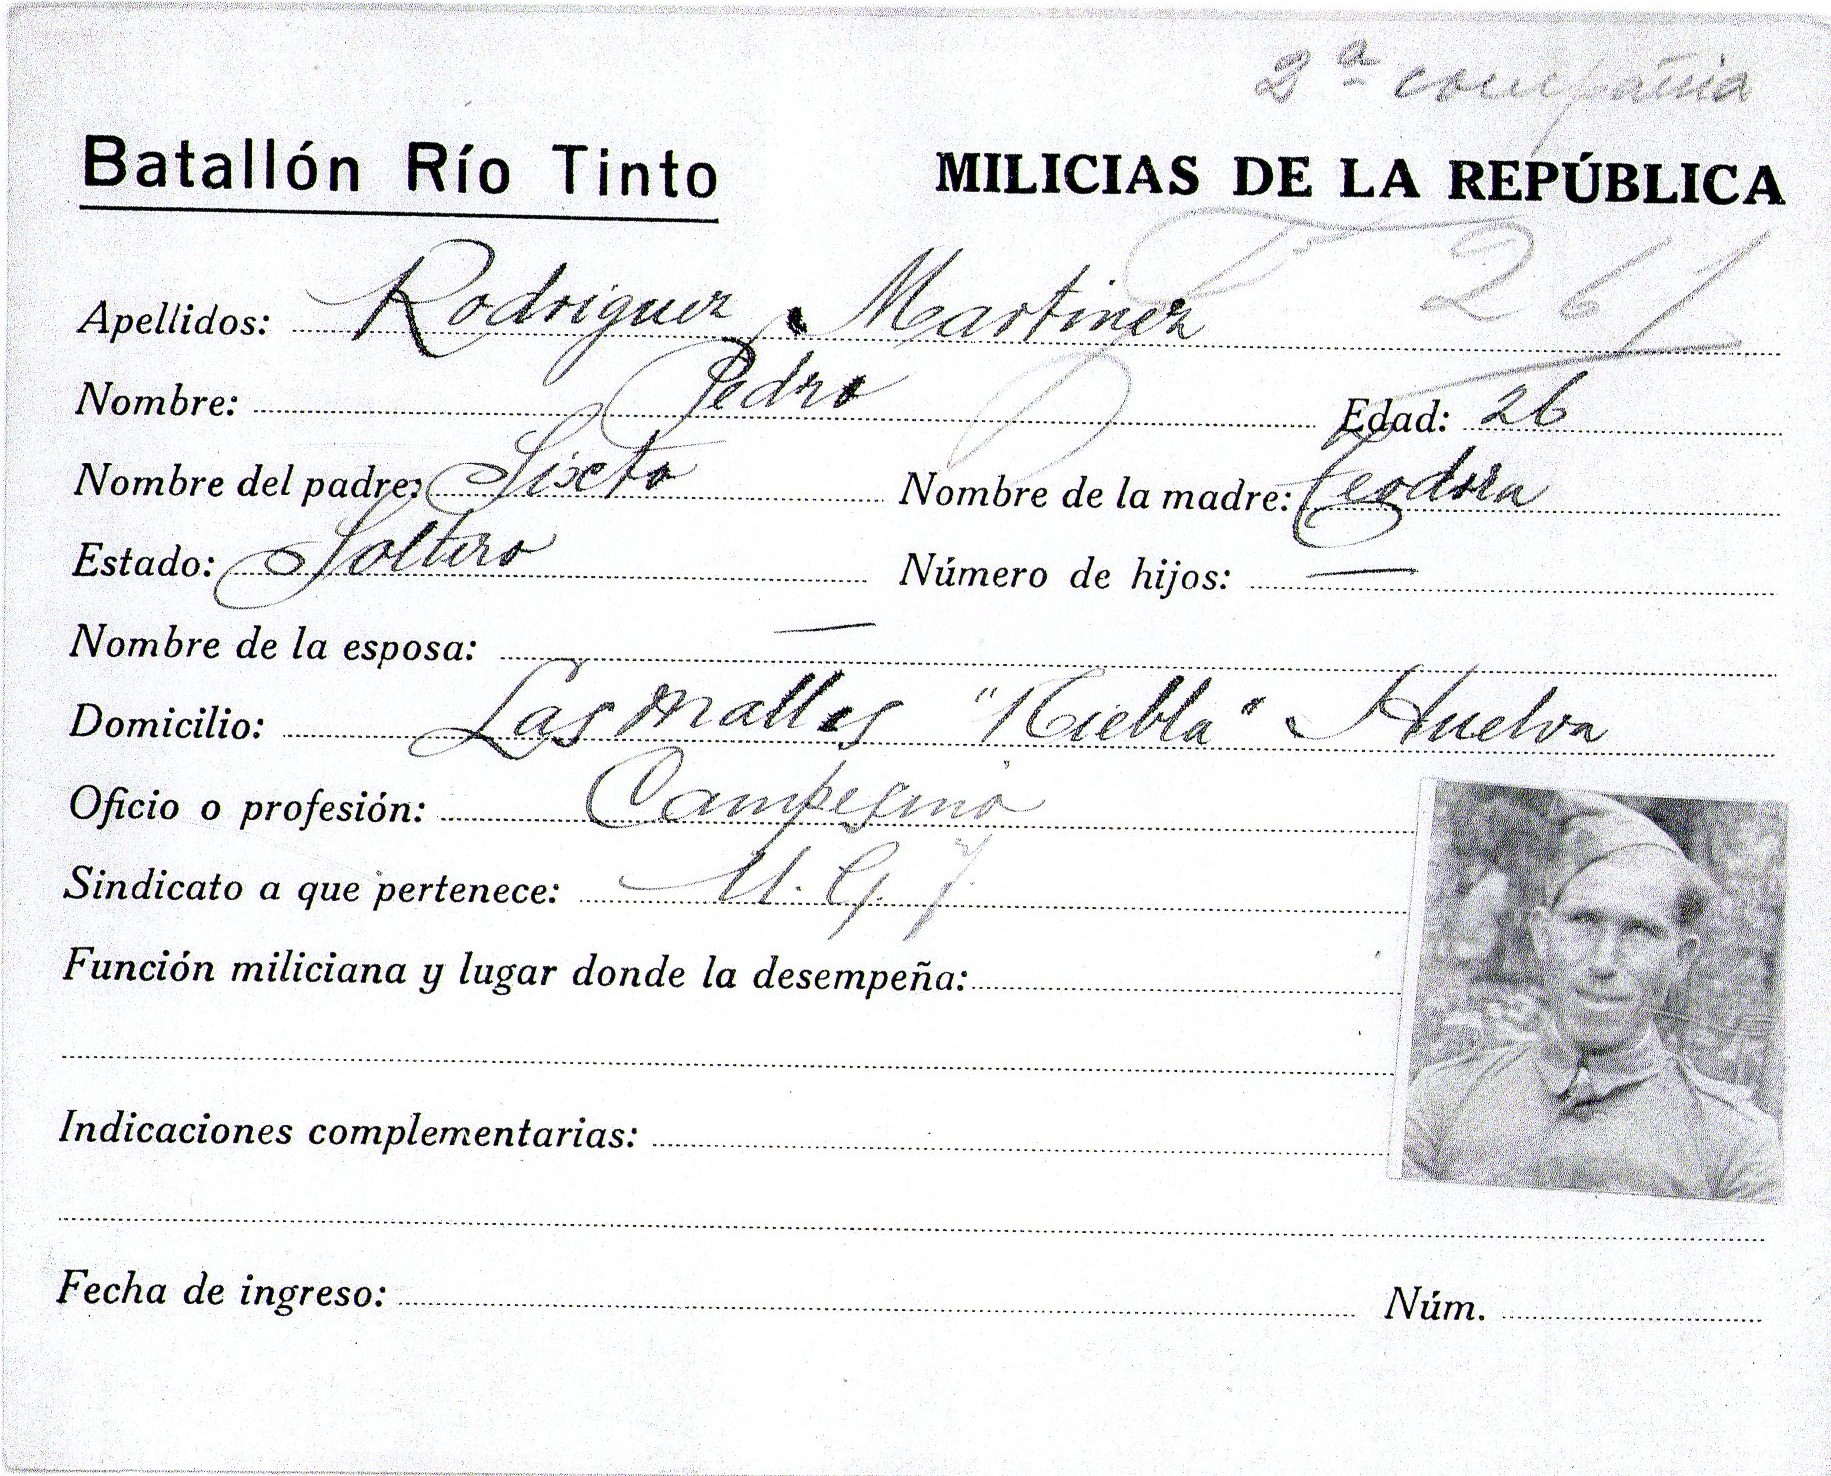 2ª compañia
Batallón Río Tinto MILICIAS DE LA REPÚBLICA
261
Apellidos: Rodriguez Martinez
Nombre: Pedro Edad: 26
Nombre del padre: Sixto Nombre de la madre: Teodora
Estado: Soltero Número de hijos: —
Nombre de la esposa: —
Domicilio: Las Mallas "Niebla" Huelva
Oficio o profesión: Campesino
Sindicato a que pertenece: U. G. T.
Función miliciana y lugar donde la desempeña:
Indicaciones complementarias:
Fecha de ingreso: Núm.